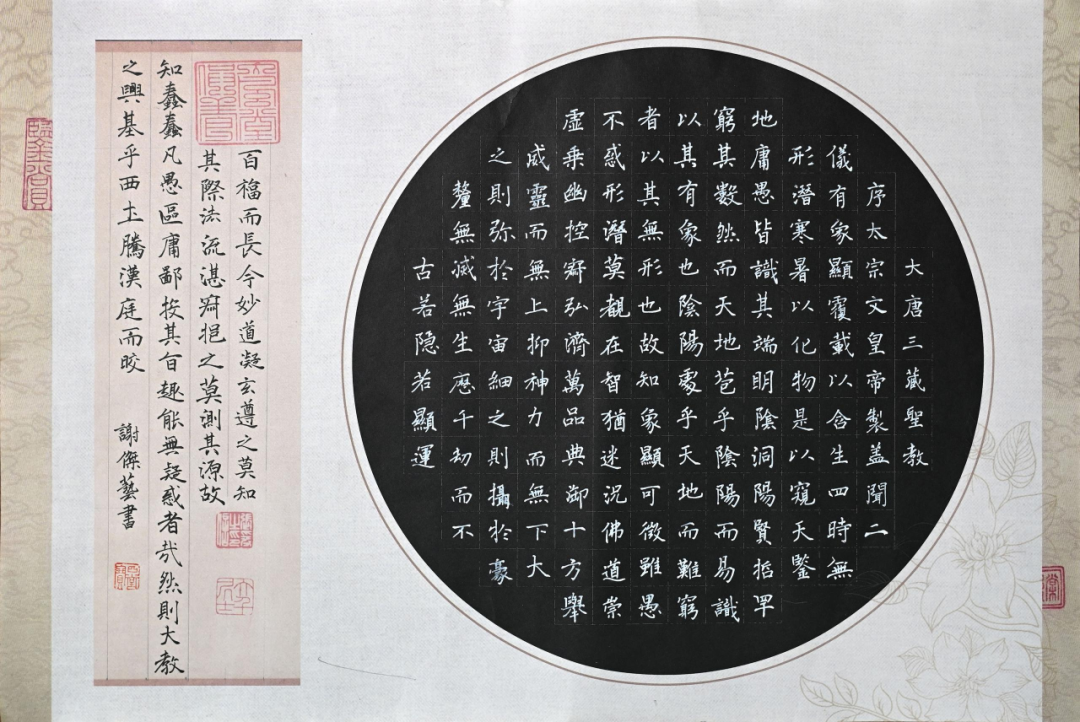 大唐三藏聖教
序太宗文皇帝製盖聞二
儀有象顯覆載以含生四時無
形潛寒暑以化物是以窺天鑒
地庸愚皆識其端明陰洞陽賢哲罕
窮其数然而天地苞乎陰陽而易識
以其有象也陰陽處乎天地而難窮
者以其無形也故知象顯可徵雖愚
不惑形潛莫覩在智猶迷況佛道崇
虛乘幽控寂弘濟萬品典御十方舉
威靈而無上抑神力而無下大
之則弥於宇宙細之則攝於豪
釐無滅無生歷千劫而不
古若隱若顯運
百福而長今妙道凝玄遵之莫知
其際法流湛寂挹之莫測其源故
知蠢蠢凡愚區庸鄙投其旨趣能無疑惑者哉然則大教
之興基乎西土騰漢庭而皎
謝傑藝書